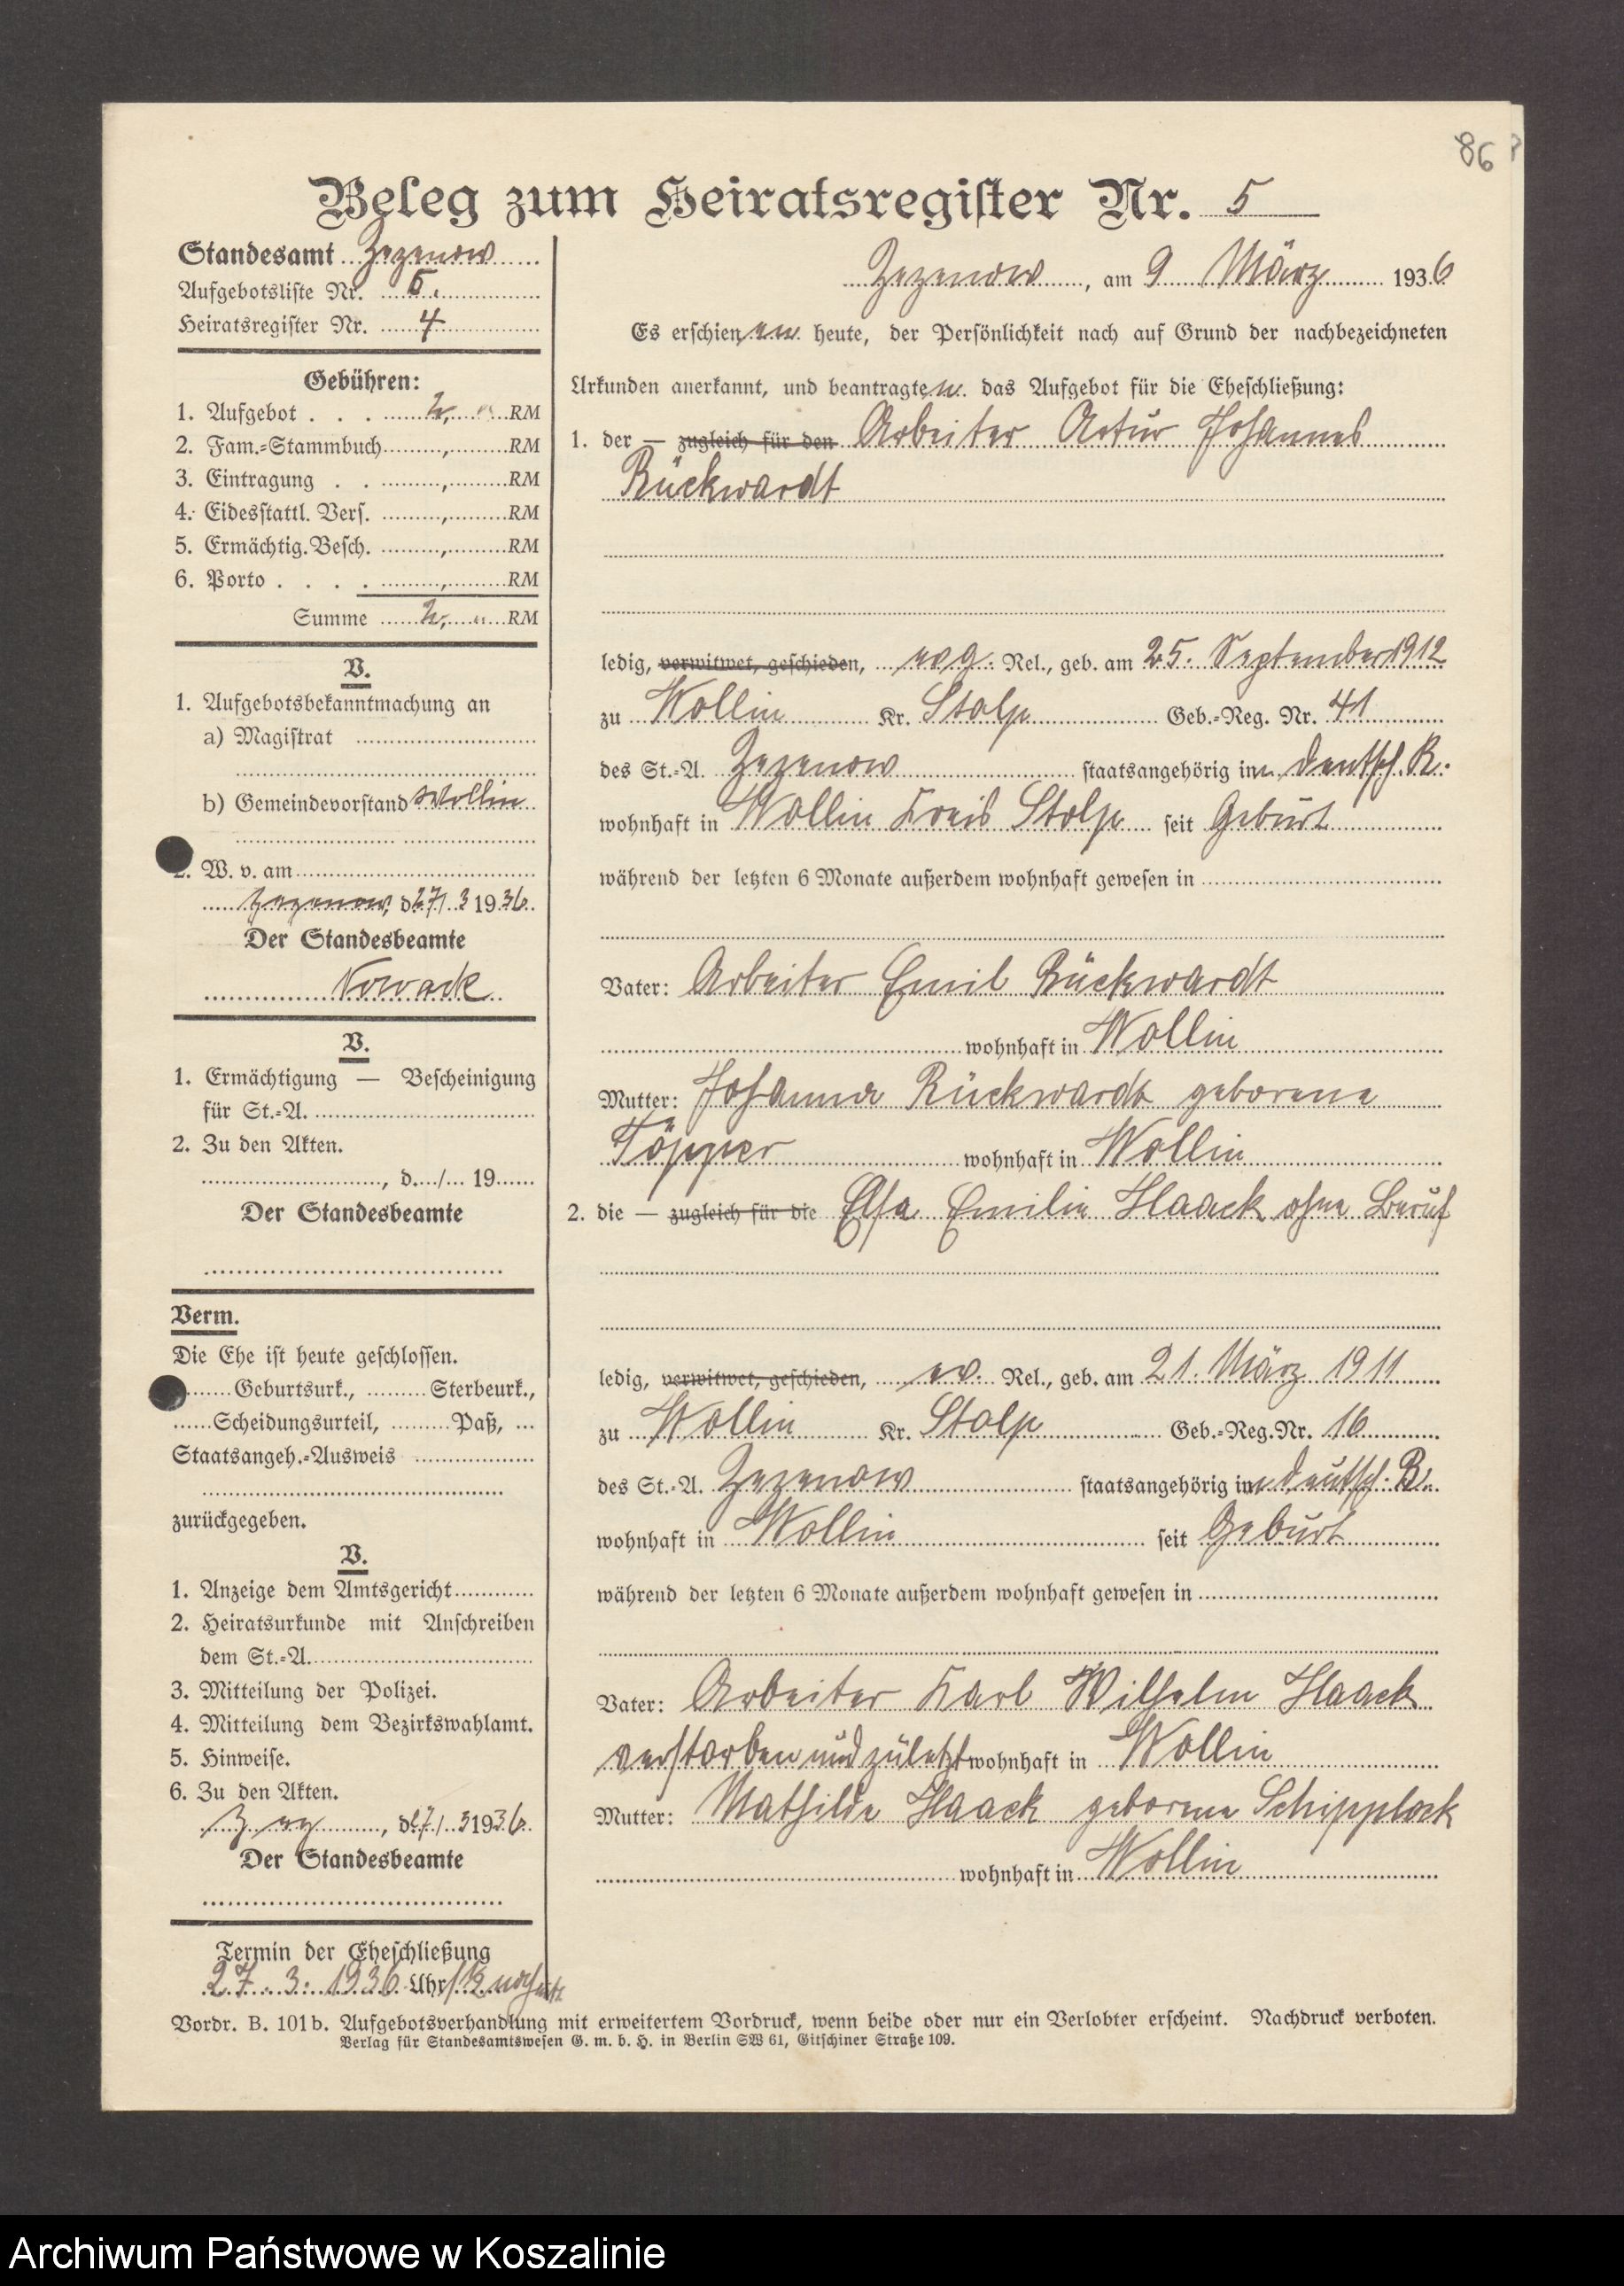 86
Beleg zum Heiratsregister Nr. 5
Standesamt Zezenow
Aufgebotsliste Nr. 5.
Heiratsregister Nr. 4
Gebühren:
1. Aufgebot . . . 2, " RM
2. Fam.-Stammbuch , RM
3. Eintragung . . , RM
4. Eidesstattl. Vers. , RM
5. Ermächtig. Besch. , RM
6. Porto . . . . , RM
Summe 2, " RM
V.
1. Aufgebotsbekanntmachung an
a) Magistrat
b) Gemeindevorstand Wollin
2. W. v. am
Zezenow, d. 27/3 1936.
Der Standesbeamte
Nowack
V.
1. Ermächtigung — Bescheinigung
für St.-A.
2. Zu den Akten.
, d. / 19
Der Standesbeamte
Verm.
Die Ehe ist heute geschlossen.
Geburtsurk., Sterbeurk.,
Scheidungsurteil, Paß,
Staatsangeh.-Ausweis
zurückgegeben.
V.
1. Anzeige dem Amtsgericht
2. Heiratsurkunde mit Anschreiben
dem St.-A.
3. Mitteilung der Polizei.
4. Mitteilung dem Bezirkswahlamt.
5. Hinweise.
6. Zu den Akten.
Zez , d. 27/3 1936.
Der Standesbeamte
Termin der Eheschließung
27. 3. 1936 Uhr
Zezenow, am 9 März 1936
Es erschienen heute, der Persönlichkeit nach auf Grund der nachbezeichneten
Urkunden anerkannt, und beantragten das Aufgebot für die Eheschließung:
1. der — zugleich für den Arbeiter Artur Johannes
Rückwardt
ledig, verwitwet, geschieden, evg. Rel., geb. am 25. September 1912
zu Wollin Kr. Stolp Geb.-Reg. Nr. 41
des St.-A. Zezenow staatsangehörig im deutsch. R.
wohnhaft in Wollin Kreis Stolp seit Geburt
während der letzten 6 Monate außerdem wohnhaft gewesen in
Vater: Arbeiter Emil Rückwardt
wohnhaft in Wollin
Mutter: Johanna Rückwardt geborene
Töpper wohnhaft in Wollin
2. die — zugleich für die Elsa Emilie Haack ohne Beruf
ledig, verwitwet, geschieden, ev. Rel., geb. am 21. März 1911
zu Wollin Kr. Stolp Geb.-Reg. Nr. 16
des St.-A. Zezenow staatsangehörig im deutsch. R.
wohnhaft in Wollin seit Geburt
während der letzten 6 Monate außerdem wohnhaft gewesen in
Vater: Arbeiter Karl Wilhelm Haack
verstorben und zuletzt wohnhaft in Wollin
Mutter: Mathilde Haack geborene Schipplock
wohnhaft in Wollin
Vordr. B. 101b. Aufgebotsverhandlung mit erweitertem Vordruck, wenn beide oder nur ein Verlobter erscheint. Nachdruck verboten.
Verlag für Standesamtswesen G. m. b. H. in Berlin SW 61, Gitschiner Straße 109.
Archiwum Państwowe w Koszalinie